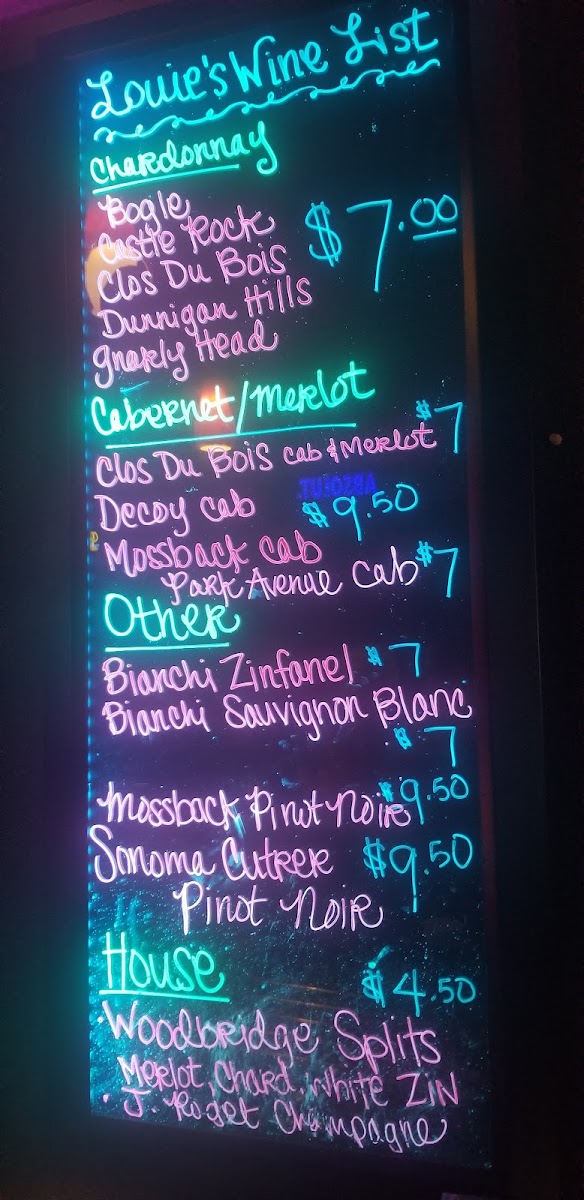 Louie's Wine List
Chardonnay
Bogle
Castle Rock $7.00
Clos Du Bois
Dunnigan Hills
Gnarly Head
Cabernet/Merlot
Clos Du Bois Cab & Merlot $7
ABSOLUT
Decoy Cab $9.50
Mossback Cab
Park Avenue Cab $7
Other
Bianchi Zinfanel $7
Bianchi Sauvignon Blanc
$7
Mossback Pinot Noir $9.50
Sonoma Cutrer $9.50
Pinot Noir
House $4.50
• Woodbridge Splits
Merlot, Chard, White Zin
• J. Roget Champagne